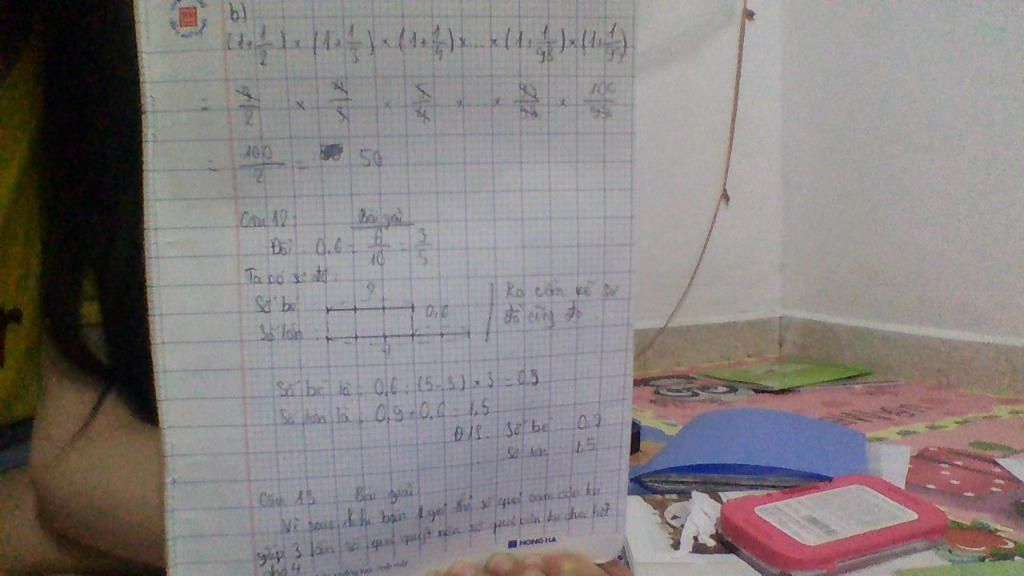 b)
(1+1/2) × (1+1/3) × (1+1/4) × ... × (1+1/98) × (1+1/99)
= 3/2 × 4/3 × 5/4 × × 99/98 × 100/99
= 100/2 = 50
Câu 12: Bài giải
Đổi: 0,6 = 6/10 = 3/5
Ta có sơ đồ:
?
Số bé 0,6
Số lớn
?
Ko cần vẽ sơ
đồ cũng đc
Số bé là: 0,6 : (5-3) × 3 = 0,9
Số lớn là: 0,9 + 0,6 = 1,5
Đ/S: Số bé 0,9
Số lớn 1,5
Câu 13 Bài giải
Vì sau khi bán 1 giờ thì số quả cam còn lại
gấp 3 lần số quả quýt nên số quả
HONG HA